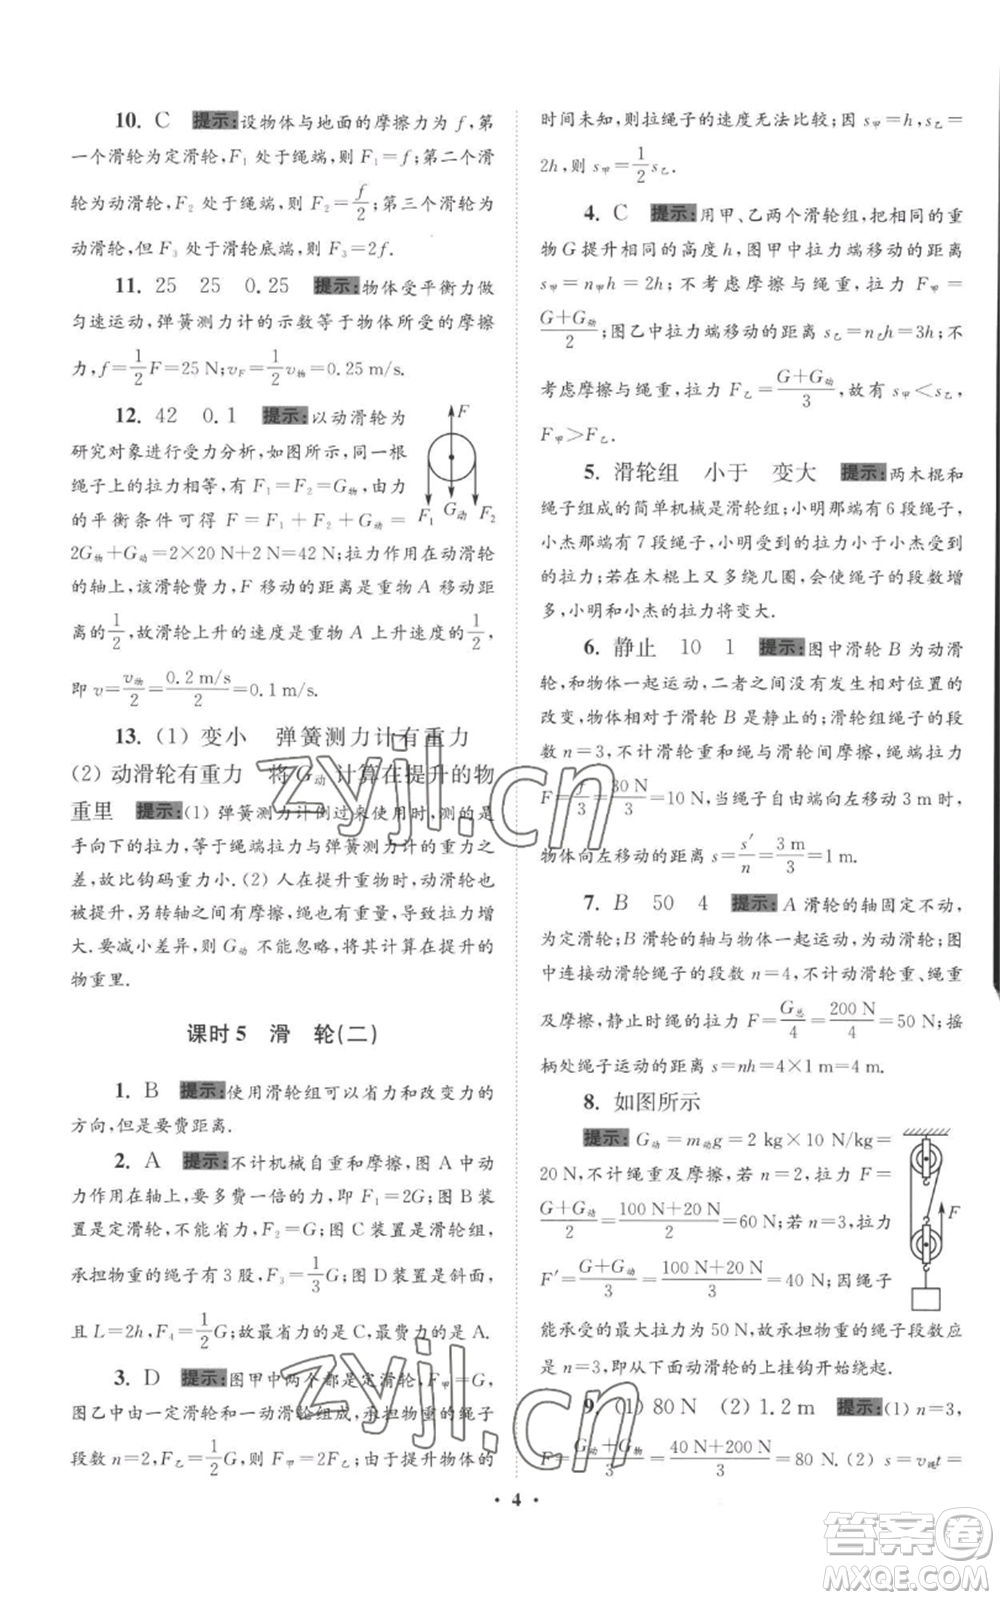 10. C 提示:设物体与地面的摩擦力为 f,第
一个滑轮为定滑轮,F₁ 处于绳端,则 F₁=f;第二个滑
轮为动滑轮,F₂ 处于绳端,则 F₂=f/2;第三个滑轮为
动滑轮,但 F₃ 处于滑轮底端,则 F₃=2f.
11. 25 25 0.25 提示:物体受平衡力做
匀速运动,弹簧测力计的示数等于物体所受的摩擦
力,f=1/2F=25 N;v_F=1/2v物=0.25 m/s.
12. 42 0.1 提示:以动滑轮为
研究对象进行受力分析,如图所示,同一根
绳子上的拉力相等,有 F₁=F₂=G物,由力
的平衡条件可得 F=F₁+F₂+G动=
2G物+G动=2×20 N+2 N=42 N;拉力作用在动滑轮
的轴上,该滑轮费力,F 移动的距离是重物 A 移动距
离的1/2,故滑轮上升的速度是重物 A 上升速度的1/2,
即 v=v物/2=0.2 m/s/2=0.1 m/s.
F
F₁ G动 F₂
13. (1) 变小 弹簧测力计有重力
(2) 动滑轮有重力 将 G动 计算在提升的物
重里 提示:(1) 弹簧测力计倒过来使用时,测的是
手向下的拉力,等于绳端拉力与弹簧测力计的重力之
差,故比钩码重力小.(2) 人在提升重物时,动滑轮也被
提升,另转轴之间有摩擦,绳也有重量,导致拉力增
大.要减小差异,则 G动 不能忽略,将其计算在提升的
物重里.
课时 5 滑 轮(二)
1. B 提示:使用滑轮组可以省力和改变力的
方向,但是要费距离.
2. A 提示:不计机械自重和摩擦,图 A 中动
力作用在轴上,要多费一倍的力,即 F₁=2G;图 B 装
置是定滑轮,不能省力,F₂=G;图 C 装置是滑轮组,
承担物重的绳子有 3 股,F₃=1/3G;图 D 装置是斜面,
且 L=2h,F₄=1/2G;故最省力的是 C,最费力的是 A.
3. D 提示:图甲中两个都是定滑轮,F甲=G,
图乙中由一定滑轮和一动滑轮组成,承担物重的绳子
段数 n=2,F乙=1/2G,F甲=2F乙;由于提升物体的
时间未知,则拉绳子的速度无法比较;因 s甲=h,s乙=
2h,则 s甲=1/2s乙.
4. C 提示:用甲、乙两个滑轮组,把相同的重
物 G 提升相同的高度 h,图甲中拉力端移动的距离
s甲=n甲h=2h;不考虑摩擦与绳重,拉力 F甲=
G+G动/2;图乙中拉力端移动的距离 s乙=n乙h=3h;不
考虑摩擦与绳重,拉力 F乙=G+G动/3,故有 s甲<s乙,
F甲>F乙.
5. 滑轮组 小于 变大 提示:两木棍和
绳子组成的简单机械是滑轮组;小明那端有 6 段绳子,
小杰那端有 7 段绳子,小明受到的拉力小于小杰受到
的拉力;若在木棍上又多绕几圈,会使绳子的段数增
多,小明和小杰的拉力将变大.
6. 静止 10 1 提示:图中滑轮 B 为动滑
轮,和物体一起运动,二者之间没有相对位置的
改变,物体相对于滑轮 B 是静止的;滑轮组绳子的段
数 n=3,不计滑轮重和绳与滑轮间摩擦,绳端拉力
F=f/3=30 N/3=10 N,当绳子自由端向左移动 3 m 时,
物体向左移动的距离 s=s′/n=3 m/3=1 m.
7. B 50 4 提示:A 滑轮的轴固定不动,
为定滑轮;B 滑轮的轴与物体一起运动,为动滑轮;图
中连接动滑轮绳子的段数 n=4,不计动滑轮重、绳重
及摩擦,静止时绳的拉力 F=G总/4=200 N/4=50 N;摇
柄处绳子运动的距离 s=nh=4×1 m=4 m.
8. 如图所示
提示:G动=m动g=2 kg×10 N/kg=
20 N,不计绳重及摩擦,若 n=2,拉力 F=
G+G动/2=100 N+20 N/2=60 N;若 n=3,拉力
F′=G+G动/3=100 N+20 N/3=40 N;因绳子
能承受的最大拉力为 50 N,故承担物重的绳子段数应
是 n=3,即从下面动滑轮的上挂钩开始绕起.
F
9. (1) 80 N (2) 1.2 m 提示:(1) n=3,
F=G动+G物/3=40 N+200 N/3=80 N.(2) s=v绳t=
· 4 ·
zyjl.cn
zyjl.cn
答案圈
MXQE.COM